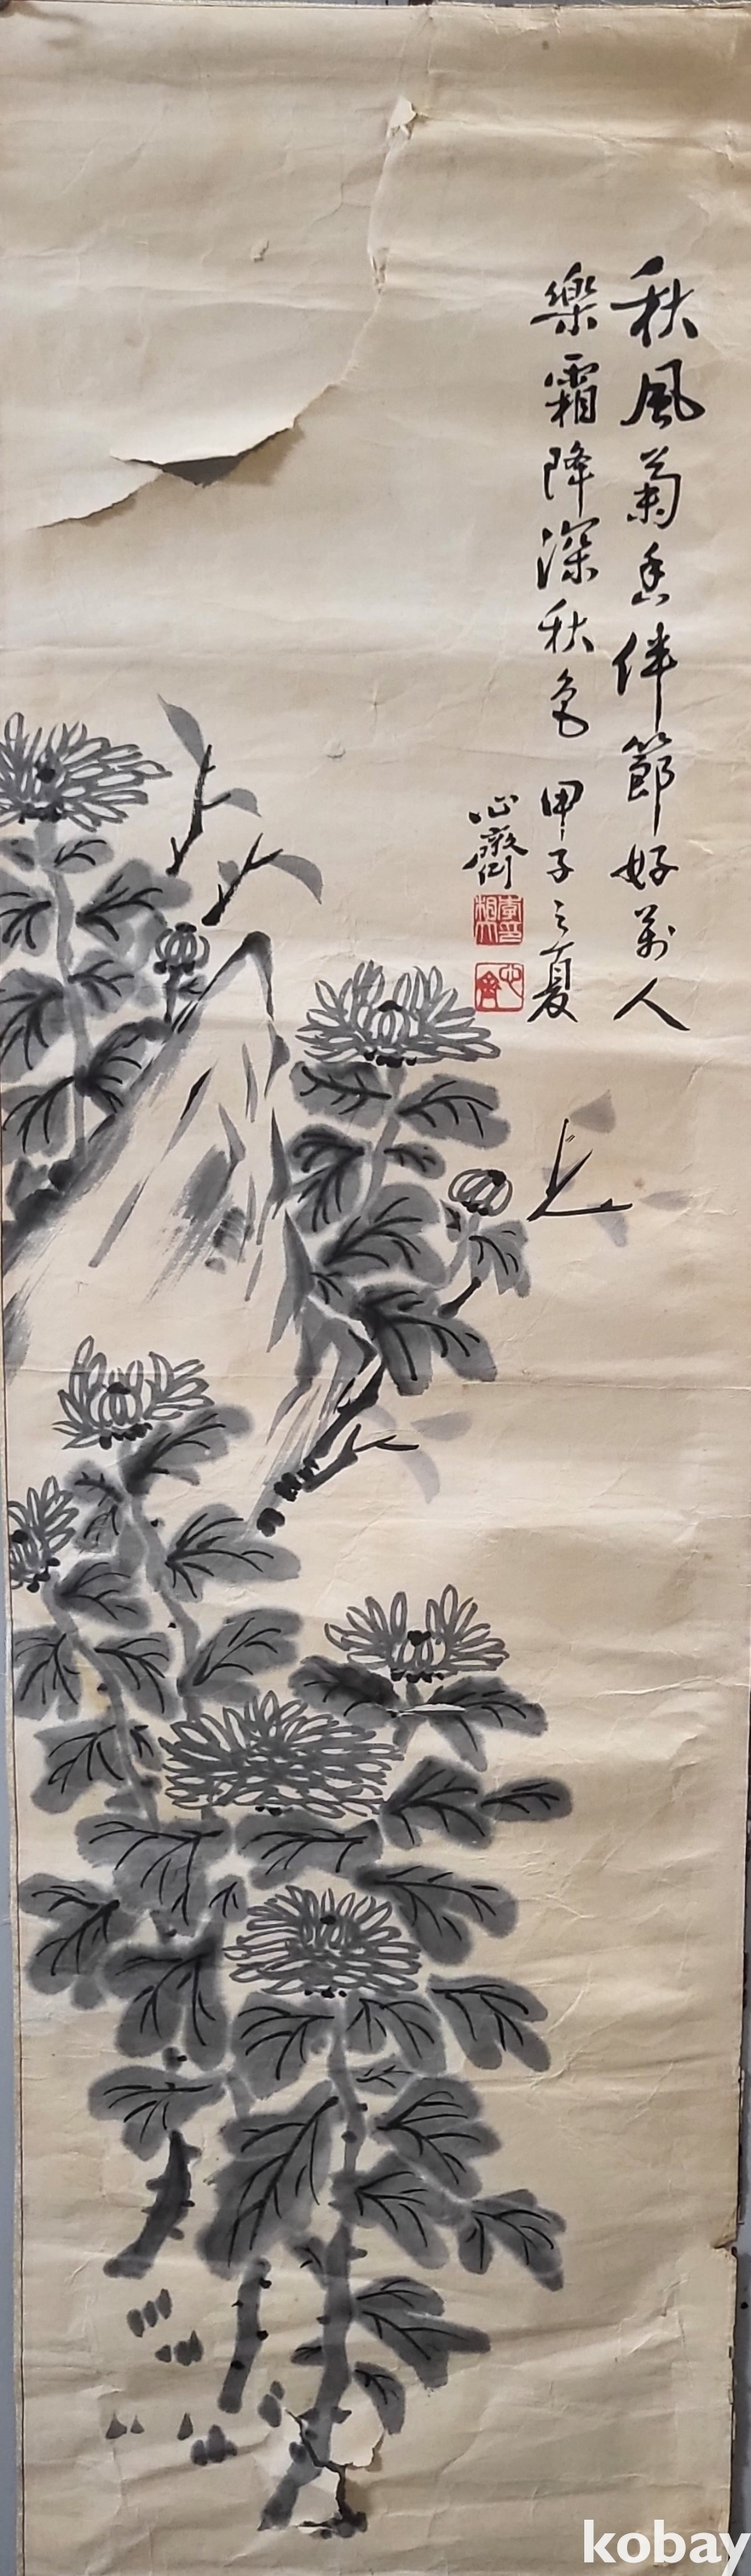 秋風菊香伴節好萬人
樂霜降深秋色 甲子之夏
心齋
心齋
kobay